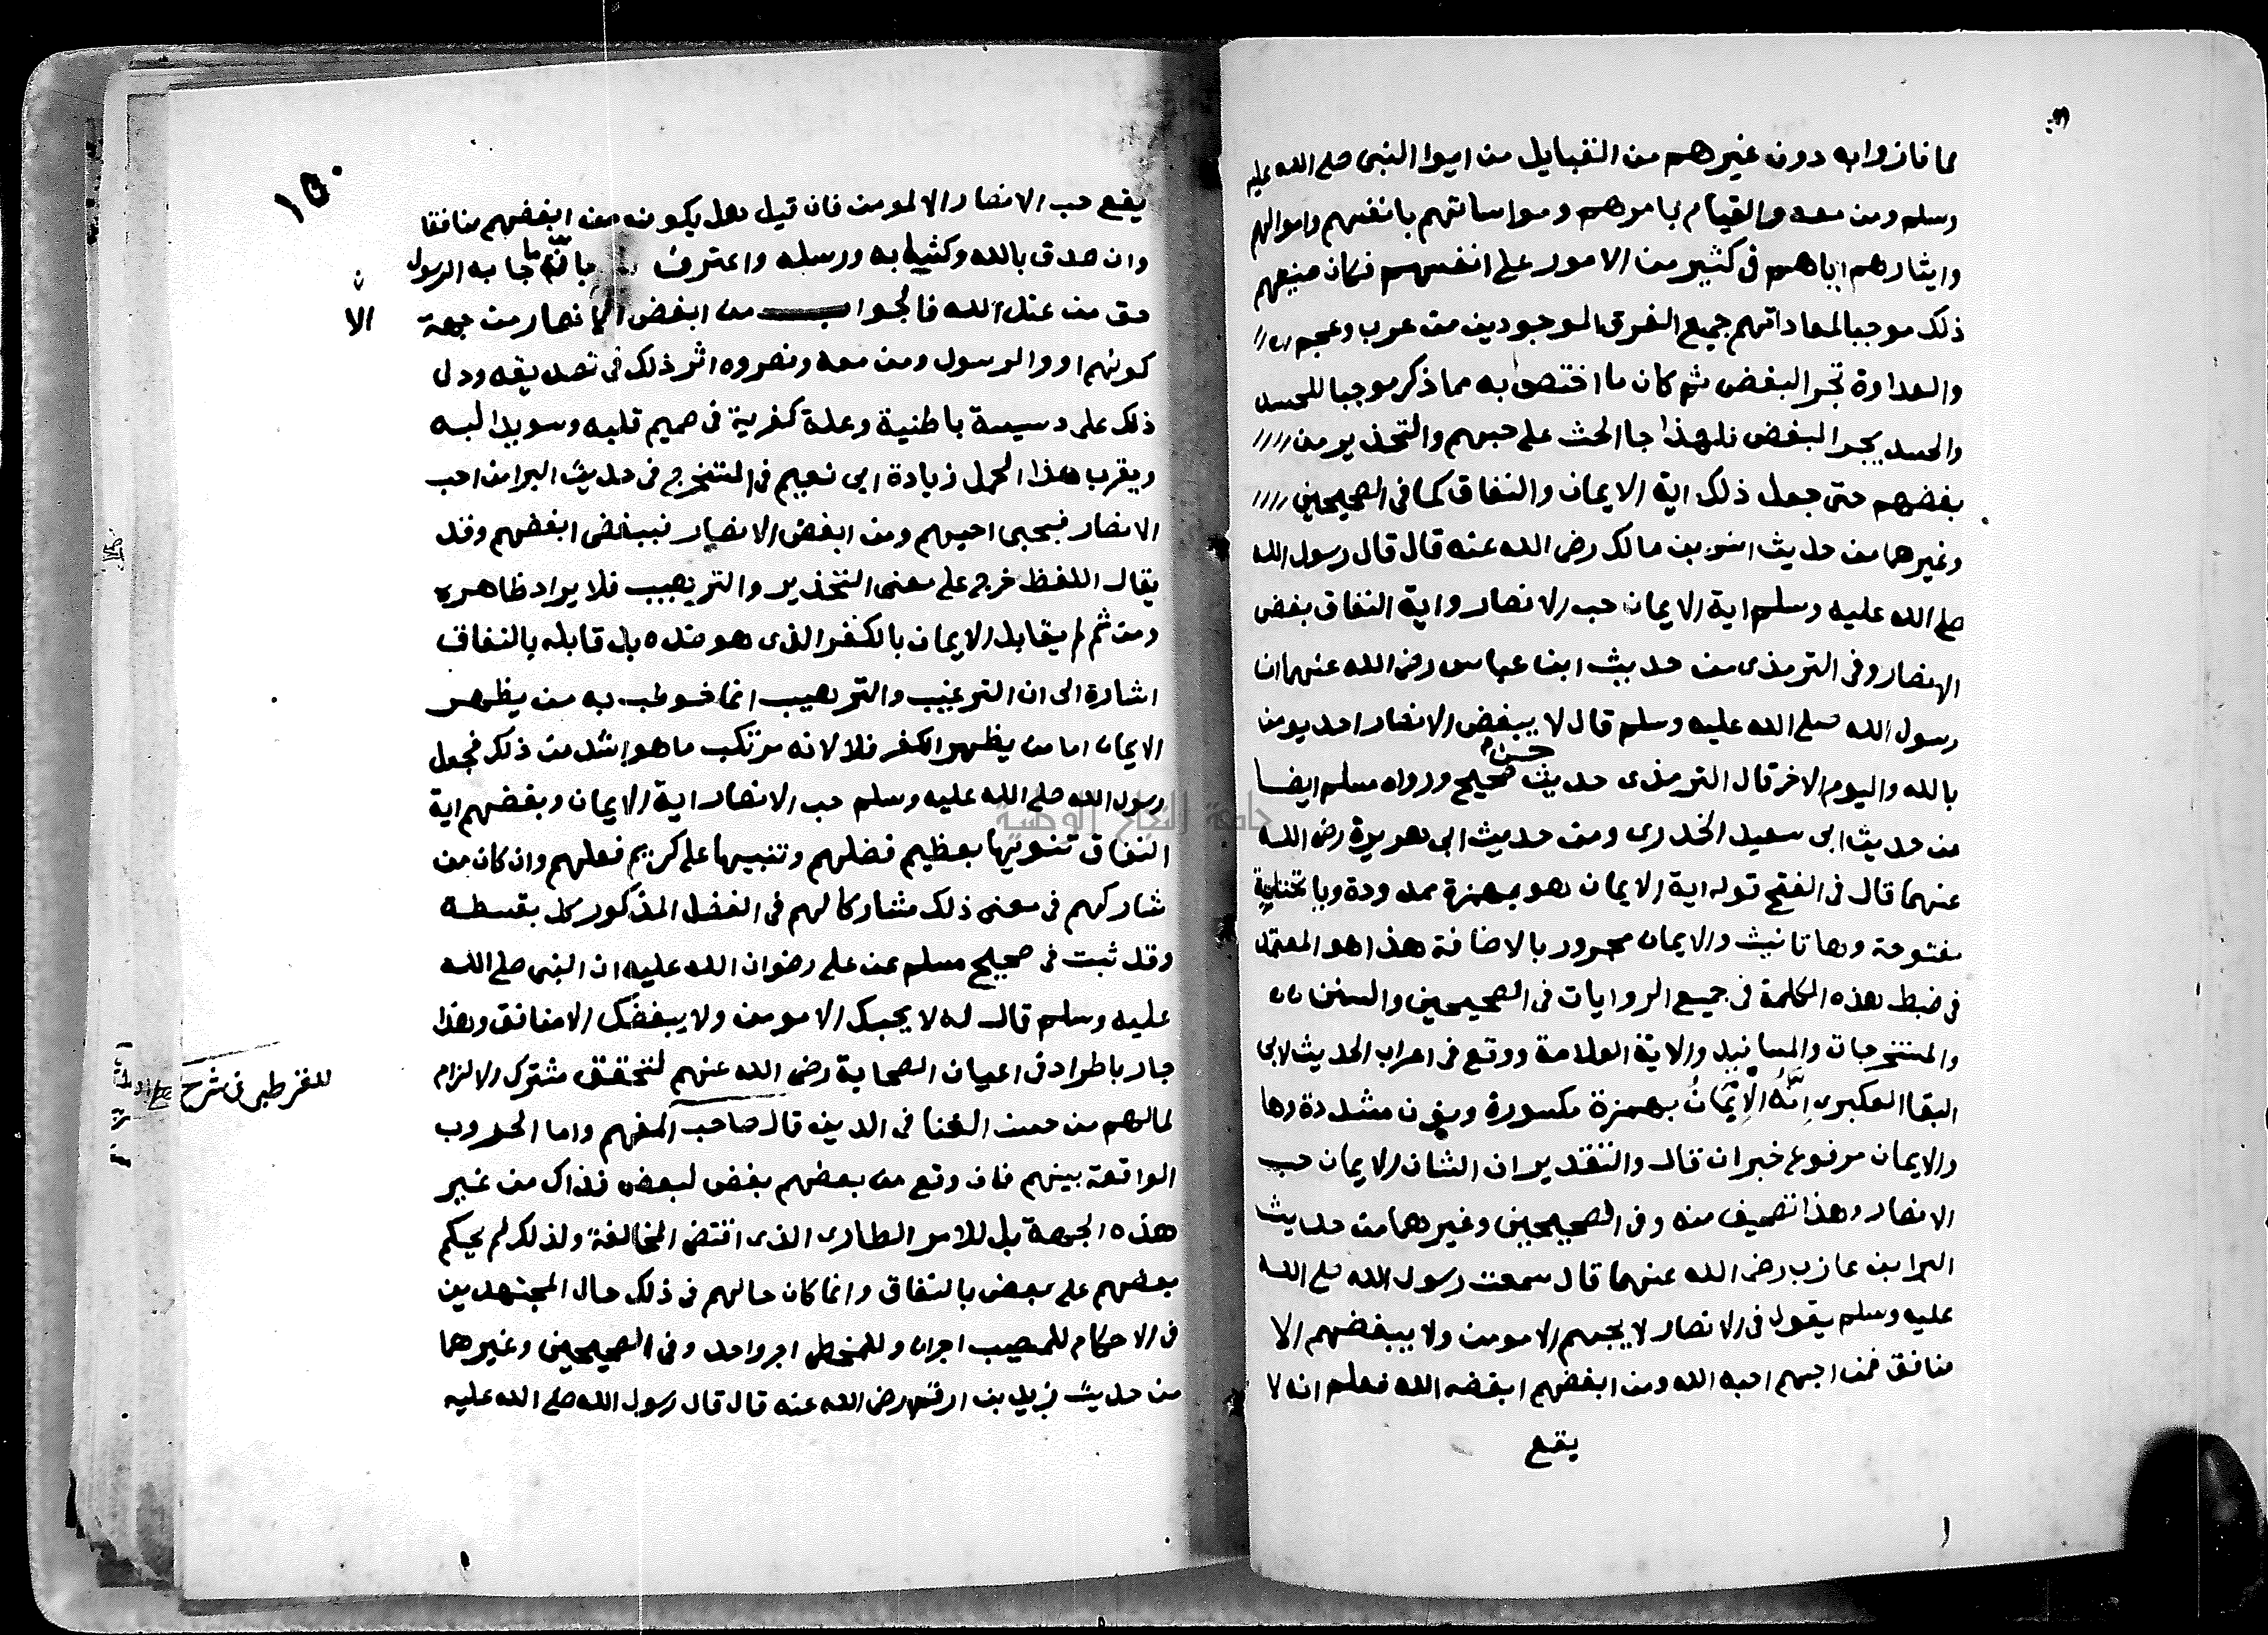 مما فازوا به دون غيرهم من القبايل من ايوا النبى صلى الله عليه
وسلم ومن معه والقيام بامرهم ومواساتهم بانفسهم واموالهم
وايثارهم اياهم فى كثير من الامور على انفسهم فكان صنيعهم
ذلك موجبا لمعاداتهم جميع الفرق الموجودين من عرب وعجم
والعداوة تجر البغض ثم كان ما اختصوا به مما ذكر موجبا للحسد
والحسد يجر البغض فلهذا جا الحث على حبهم والتحذير من
بغضهم حتى جعل ذلك اية الايمان والنفاق كما فى الصحيحين
وغيرهما من حديث انس بن مالك رضى الله عنه قال قال رسول الله
صلى الله عليه وسلم اية الايمان حب الانصار واية النفاق بغض
الانصار وفى الترمذى من حديث ابن عباس رضى الله عنهما ان
رسول الله صلى الله عليه وسلم قال لا يبغض الانصار احد يومن
بالله واليوم الاخر قال الترمذى حديث حسن صحيح ورواه مسلم ايضا
من حديث ابى سعيد الخدرى ومن حديث ابى هريرة رضى الله
عنهما قال فى الفتح قوله اية الايمان هو بهمزة ممدودة وياتحتانية
مفتوحة وها تانيث والايمان مجرور بالاضافة هذا هو المعتمد
فى ضبط هذه الكلمة فى جميع الروايات فى الصحيحين والسنن
والمستخرجات والمسانيد والاية العلامة ووقع فى اعراب الحديث لابى
البقا العكبرى اِنَّهُ الِايمَانُ بهمزة مكسورة ونون مشددة وها
والايمان مرفوع خبر ان قال والتقدير ان الشان الايمان حب
الانصار وهذا تصحيف منه وفى الصحيحين وغيرهما من حديث
البرا بن عازب رضى الله عنهما قال سمعت رسول الله صلى الله
عليه وسلم يقول فى الانصار لا يحبهم الا مومن ولا يبغضهم الا
منافق فمن احبهم احبه الله ومن ابغضهم ابغضه الله فعلم انه لا
يقع
١٥٠
يقع حب الانصار الا لمومن فان قيل هل يكون من ابغضهم منافقا
وان صدق بالله وكتبه ورسله واعترف بان ما جا به الرسول
حق من عند الله فالجواب من ابغض الانصار من جهة
الا
كونهم اووا الرسول ومن معه ونصروه اثر ذلك فى تصديقه ودل
ذلك على دسيسة باطنية وعلة كفرية فى صميم قلبه وسويدا لبه
ويقرب هذا الحمل زيادة ابى نعيم فى المستخرج فى حديث البرا من احب
الانصار فبحبى احبهم ومن ابغض الانصار فببغضى ابغضهم وقد
يقال اللفظ خرج على معنى التحذير والترهيب فلا يراد ظاهره
ومن ثم لم يقابل الايمان بالكفر الذى هو ضده بل قابله بالنفاق
اشارة الى ان الترغيب والترهيب انما خوطب به من يظهر
الايمان اما من يظهر الكفر فلا لانه مرتكب ما هو اشد من ذلك فجعل
رسول الله صلى الله عليه وسلم حب الانصار اية الايمان وبغضهم اية
النفاق تنويها بعظيم فضلهم وتنبيها على كريم فعلهم وان كان من
شاركهم فى معنى ذلك مشاركا لهم فى الفضل المذكور كل بقسطه
وقد ثبت فى صحيح مسلم عن على رضوان الله عليه ان النبى صلى الله
عليه وسلم قال له لا يحبك الا مومن ولا يبغضك الا منافق وهذا
جار باطراد فى اعيان الصحابة رضى الله عنهم لتحقق مشترك الالزام
للقرطبى فى شرح
لمالهم من حسن الغنا فى الدين قال صاحب المفهم واما الحروب
الواقعة بينهم فان وقع من بعضهم بغض لبعض فذاك من غير
هذه الجهة بل للامر الطارى الذى اقتضى المخالفة ولذلك لم يحكم
بعضهم على بعض بالنفاق وانما كان حالهم فى ذلك حال المجتهدين
فى الاحكام للمصيب اجران وللمخطى اجر واحد وفى الصحيحين وغيرهما
من حديث زيد بن ارقم رضى الله عنه قال قال رسول الله صلى الله عليه
جامعة النجاح الوطنية